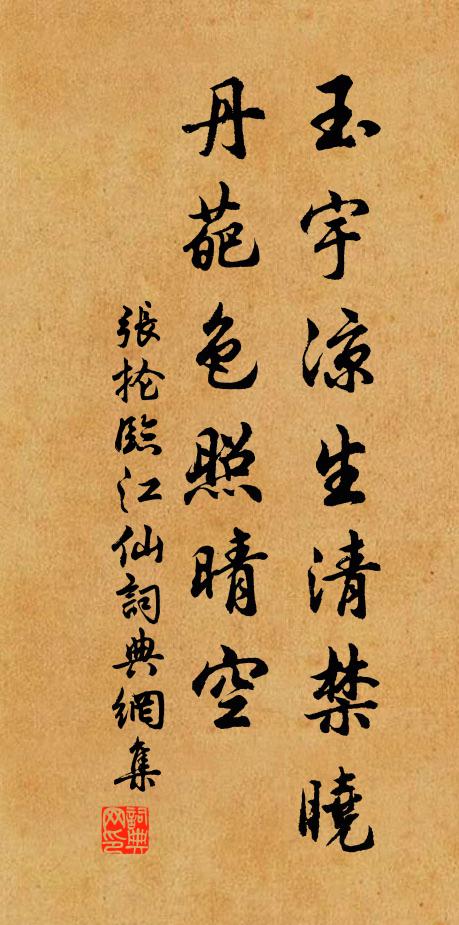 玉宇涼生清禁曉
丹葩色照晴空
張抡臨江仙詞典網集
詞典网印